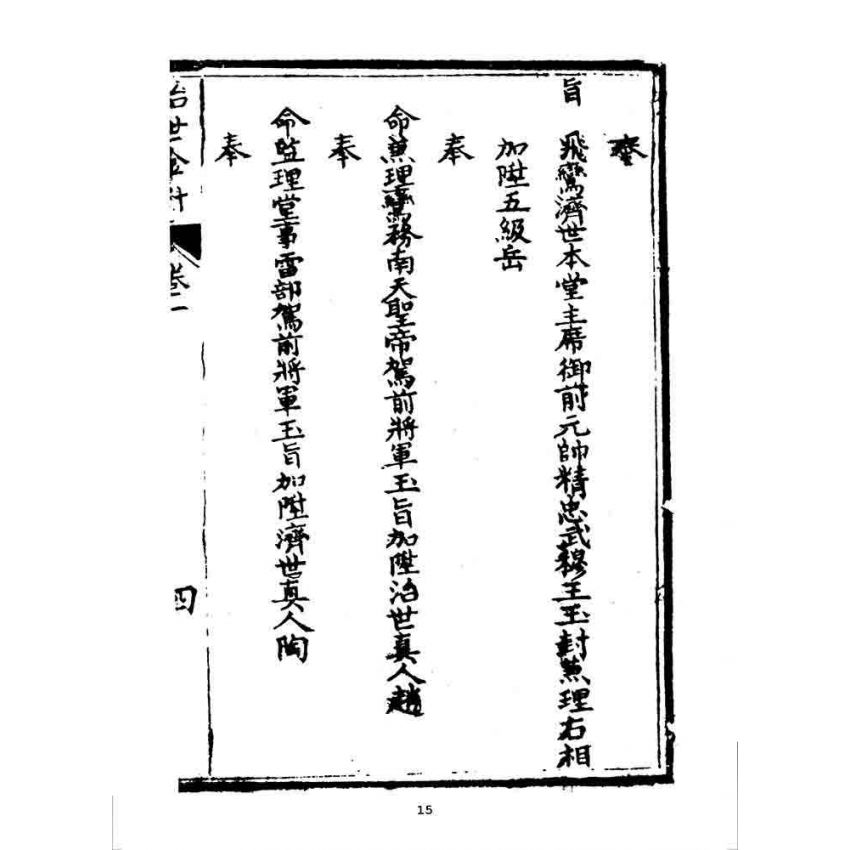 奉
旨 飛鸞濟世本堂主席御前元帥精忠武穆王玉封兼理右相
加陞五級岳
奉
命兼理鸞務南天聖帝駕前將軍玉旨加陞治世真人趙
奉
命監理堂事雷部駕前將軍玉旨加陞濟世真人陶
奉
治世金針 卷一 四
15